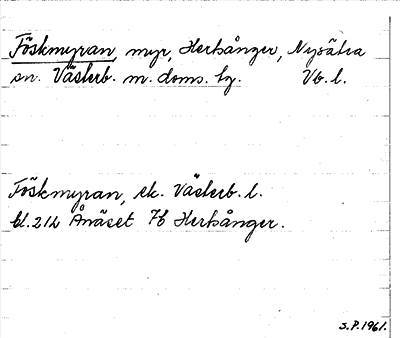 Töskmyran, myr, Herrsånger, Nysätra
sn. Västerb. m. doms. hg. Vb. l.
Töskmyran, ek. Västerb. l.
bl. 212 Ånäset 7b Herrsånger.
S.P. 1961.